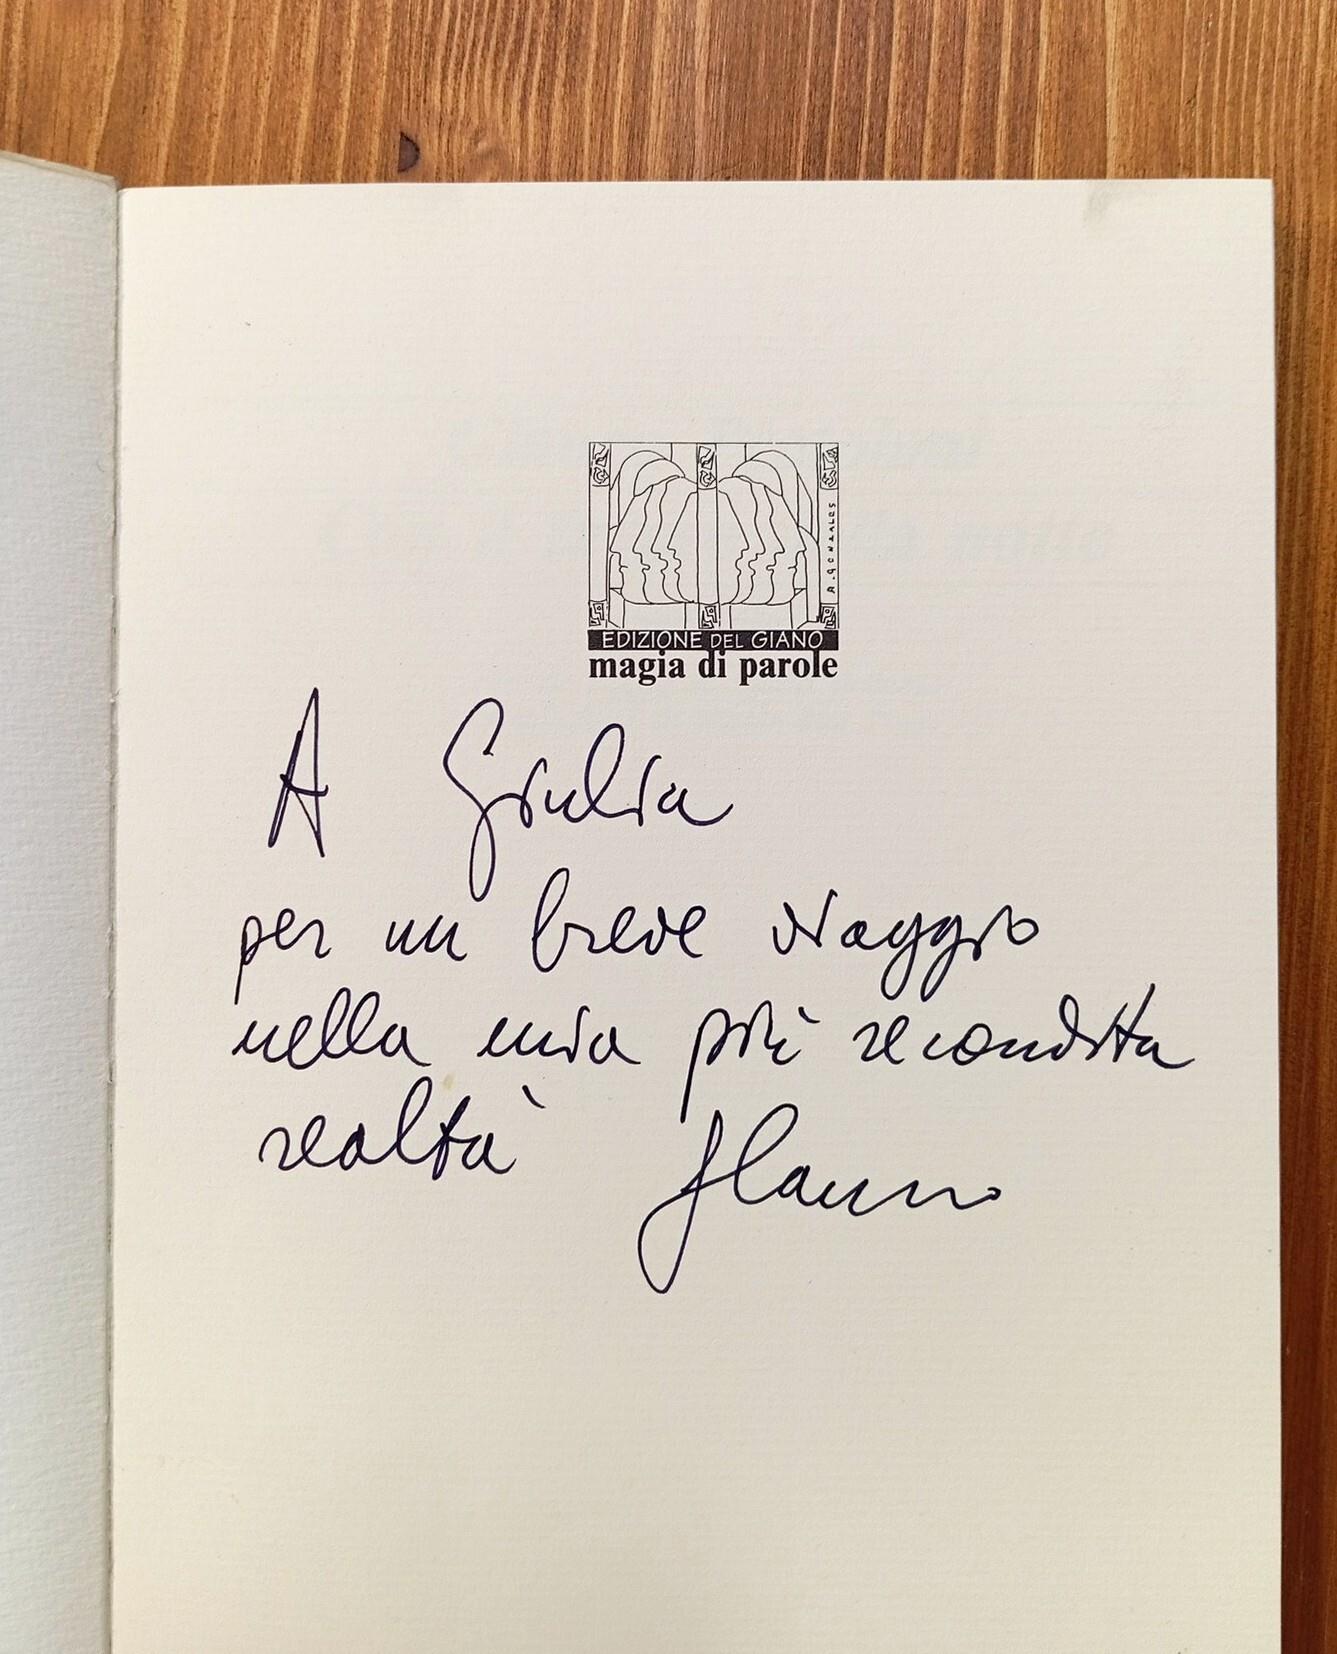 A. GONZALES
EDIZIONE DEL GIANO
magia di parole
A Giulia
per un breve viaggio
nella mia più recondita
realtà